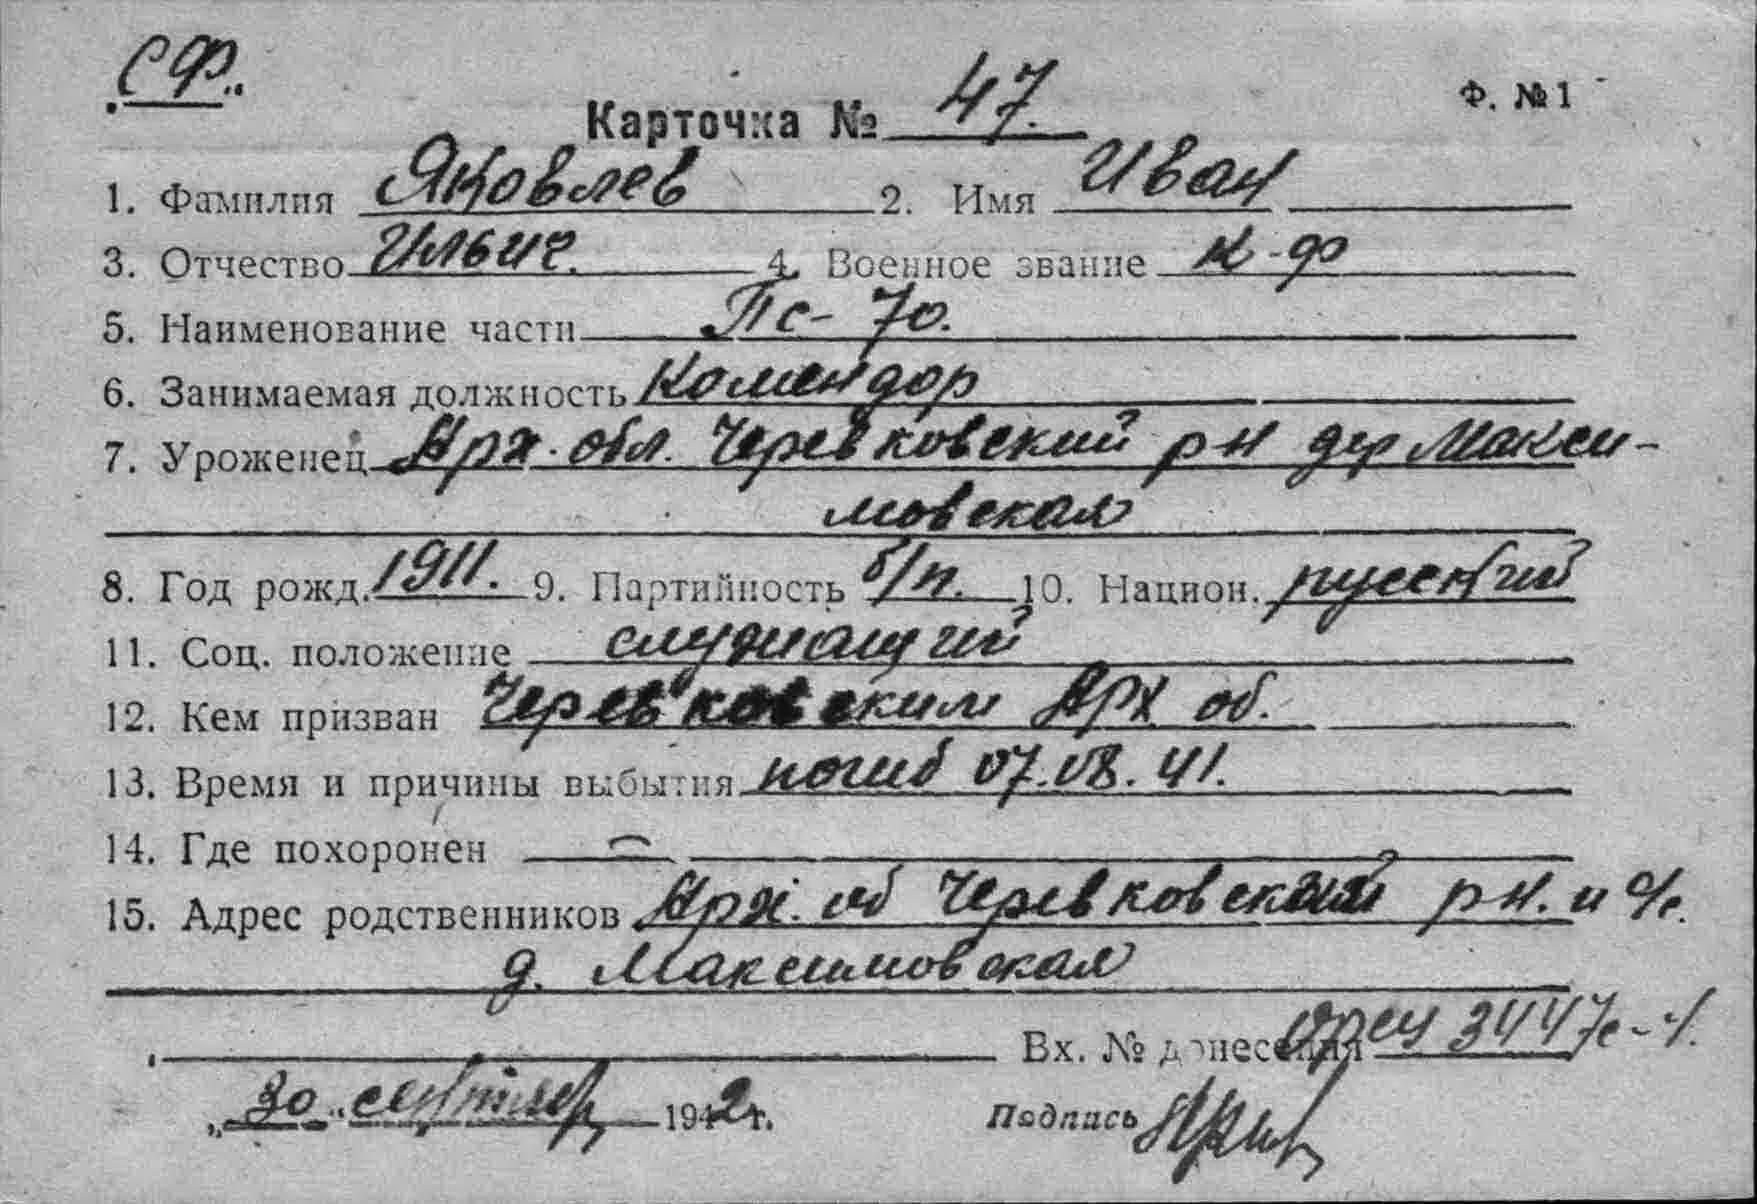 СФ.
Карточка № 47.
Ф. № 1
1. Фамилия Яковлев 2. Имя Иван
3. Отчество Ильич. 4. Военное звание к-ф
5. Наименование части Пс-70.
6. Занимаемая должность Комендор
7. Уроженец Арх. обл. Черевковский р н дер Макси-
мовская
8. Год рожд. 1911. 9. Партийность б/п. 10. Национ. русский
11. Соц. положение служащий
12. Кем призван Черевковским Арх об.
13. Время и причины выбытия погиб 07.08.41.
14. Где похоронен —
15. Адрес родственников Арх. об Черевковский р н. и
д. Максимовская
Вх. № донесения 3447с
„30" сентября 1942 г. Подпись